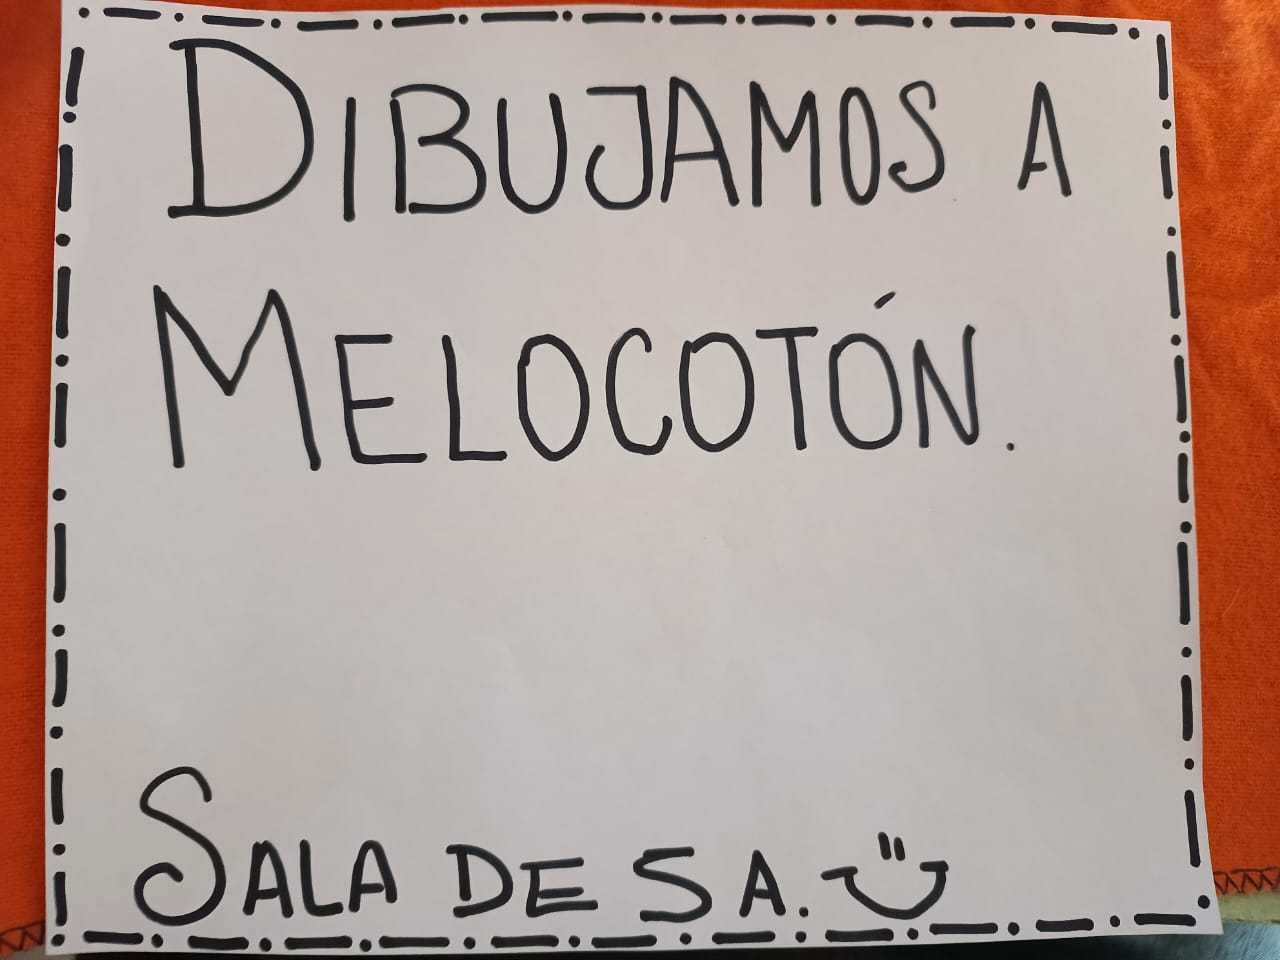 DIBUJAMOS A
MELOCOTÓN.
SALA DE 5 A.